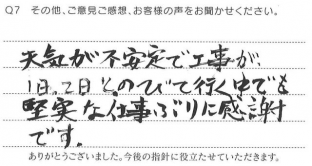 Q7 その他、ご意見ご感想、お客様の声をお聞かせください。
天気が不安定で工事が、
1日、2日とのびて行く中でも
堅実な仕事ぶりに感謝
です。
ありがとうございました。今後の指針に役立たせていただきます。